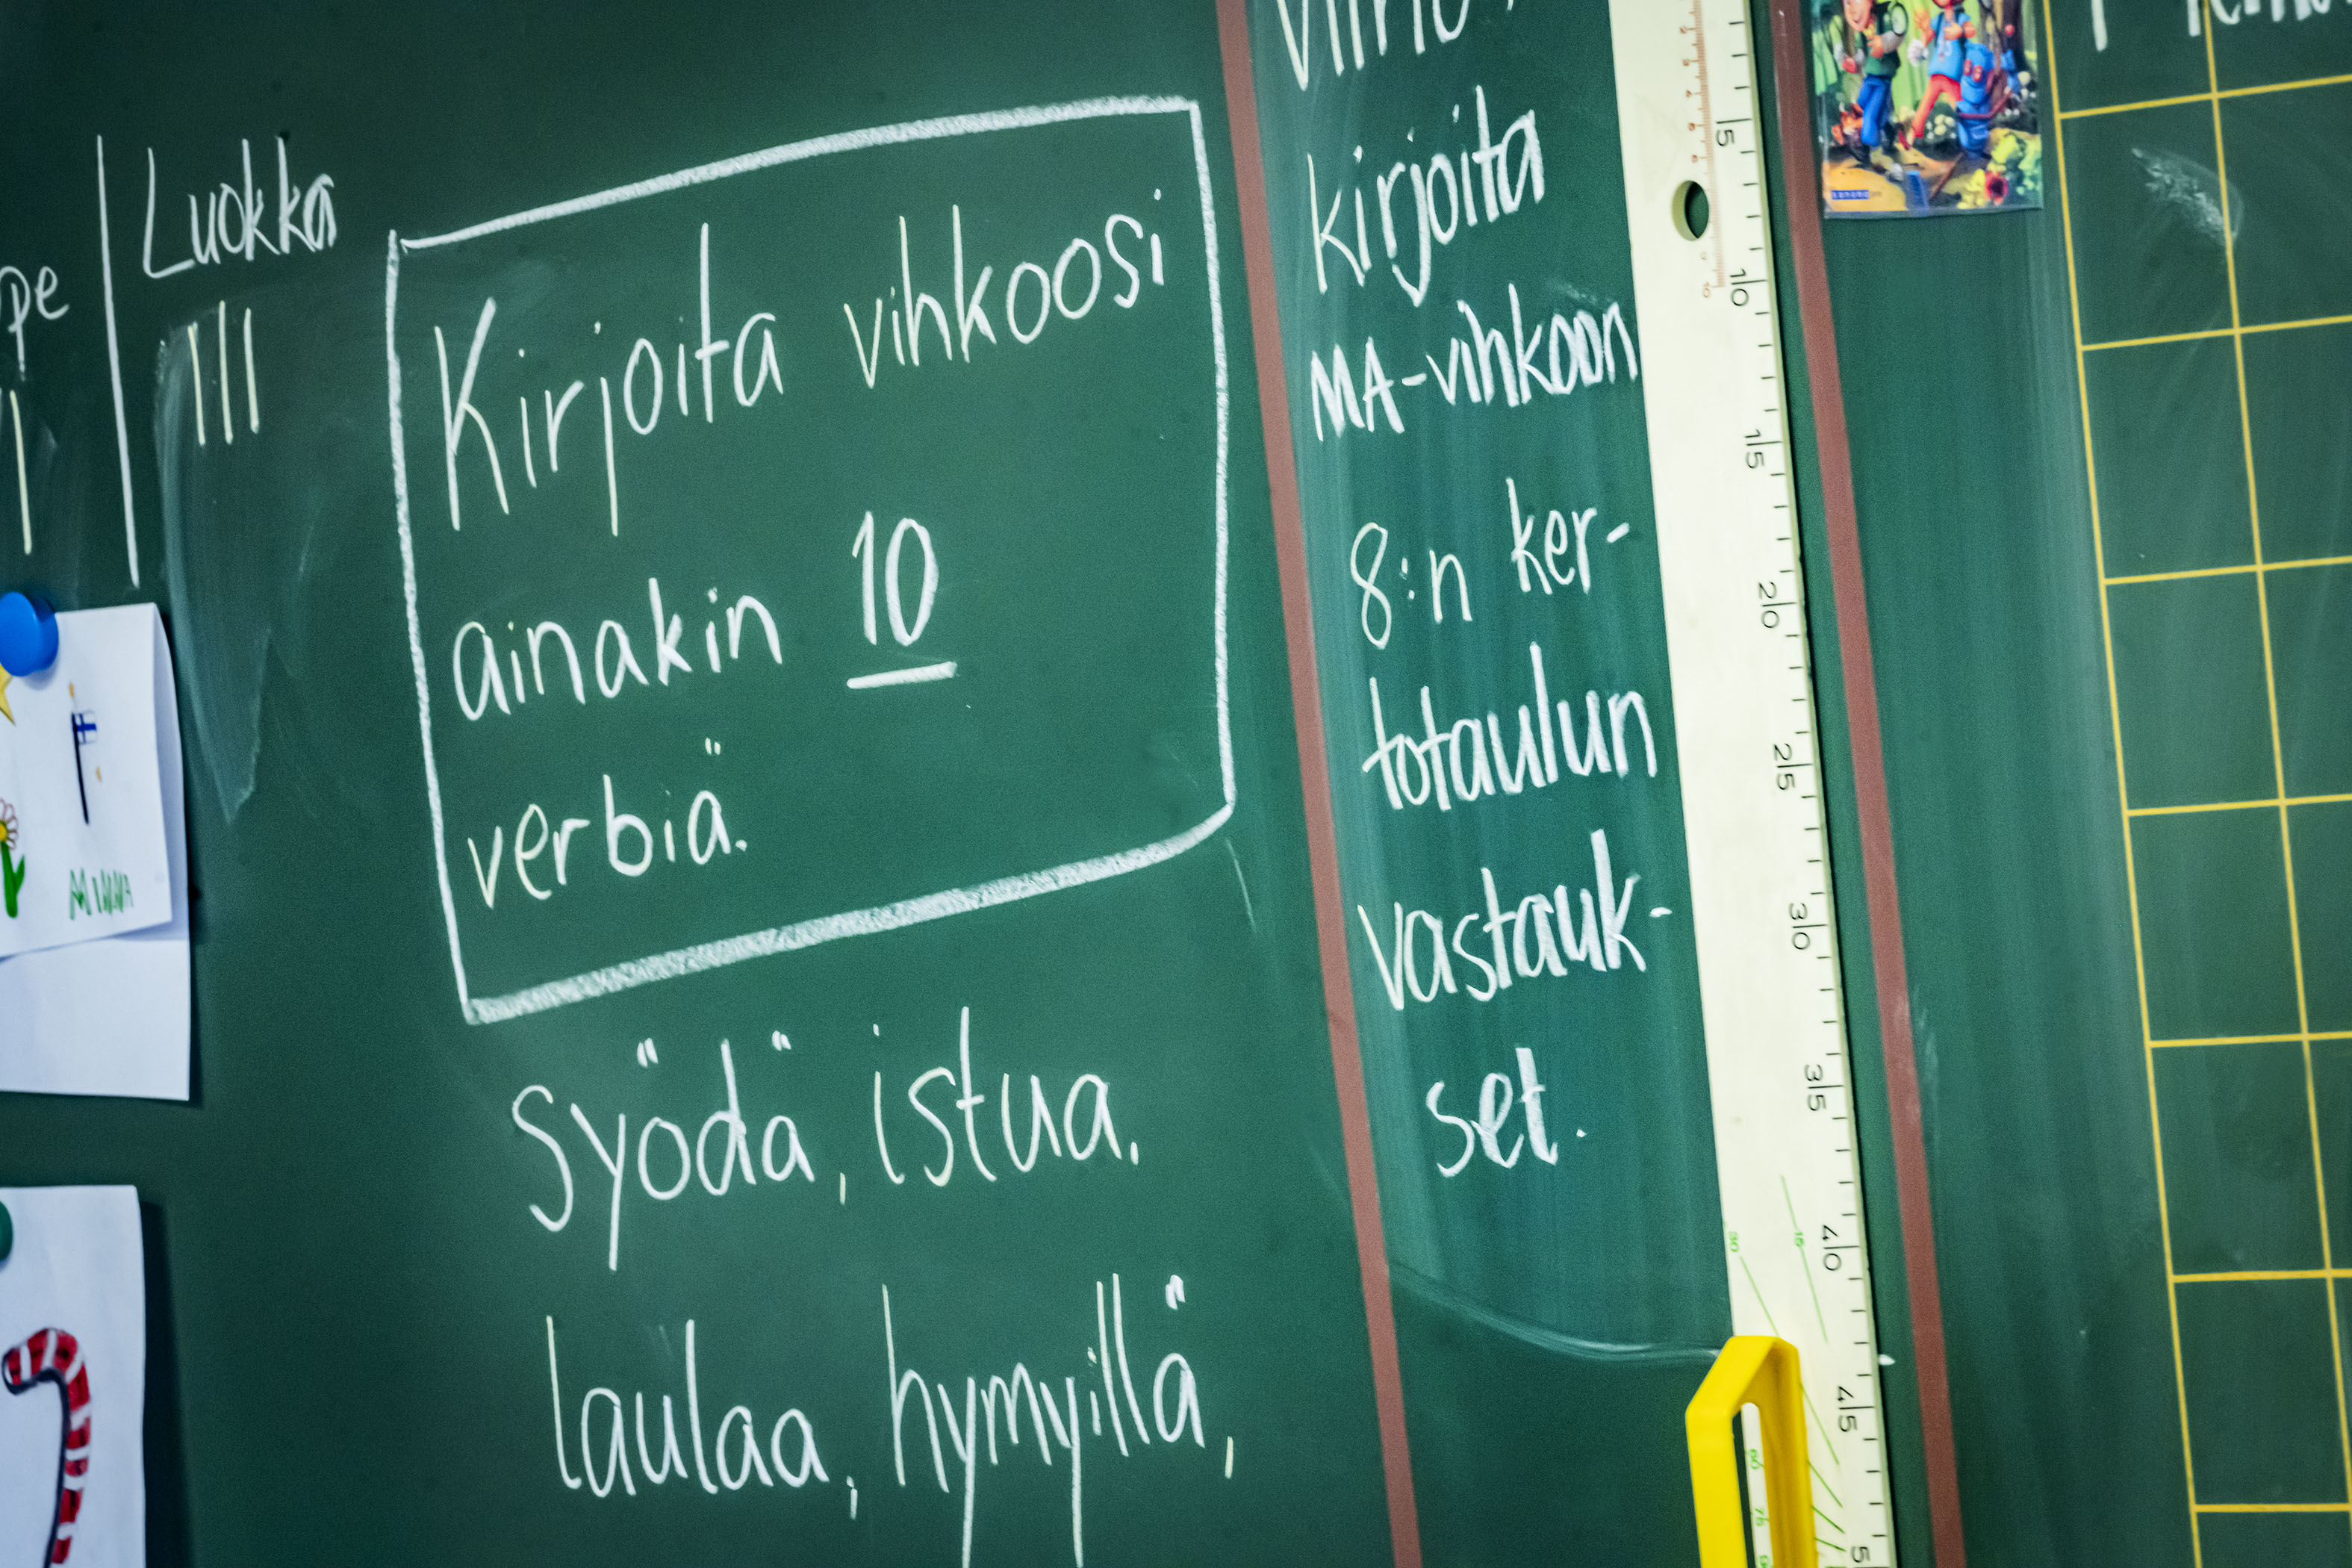 pe
Luokka
Kirjoita vihkoosi
ainakin 10
verbiä.
syödä, istua.
laulaa, hymyillä,
MINNA
kirjoita
MA-vihkoon
8:n ker-
totaulun
vastauk-
set.
5
10
15
20
25
30
35
40
45